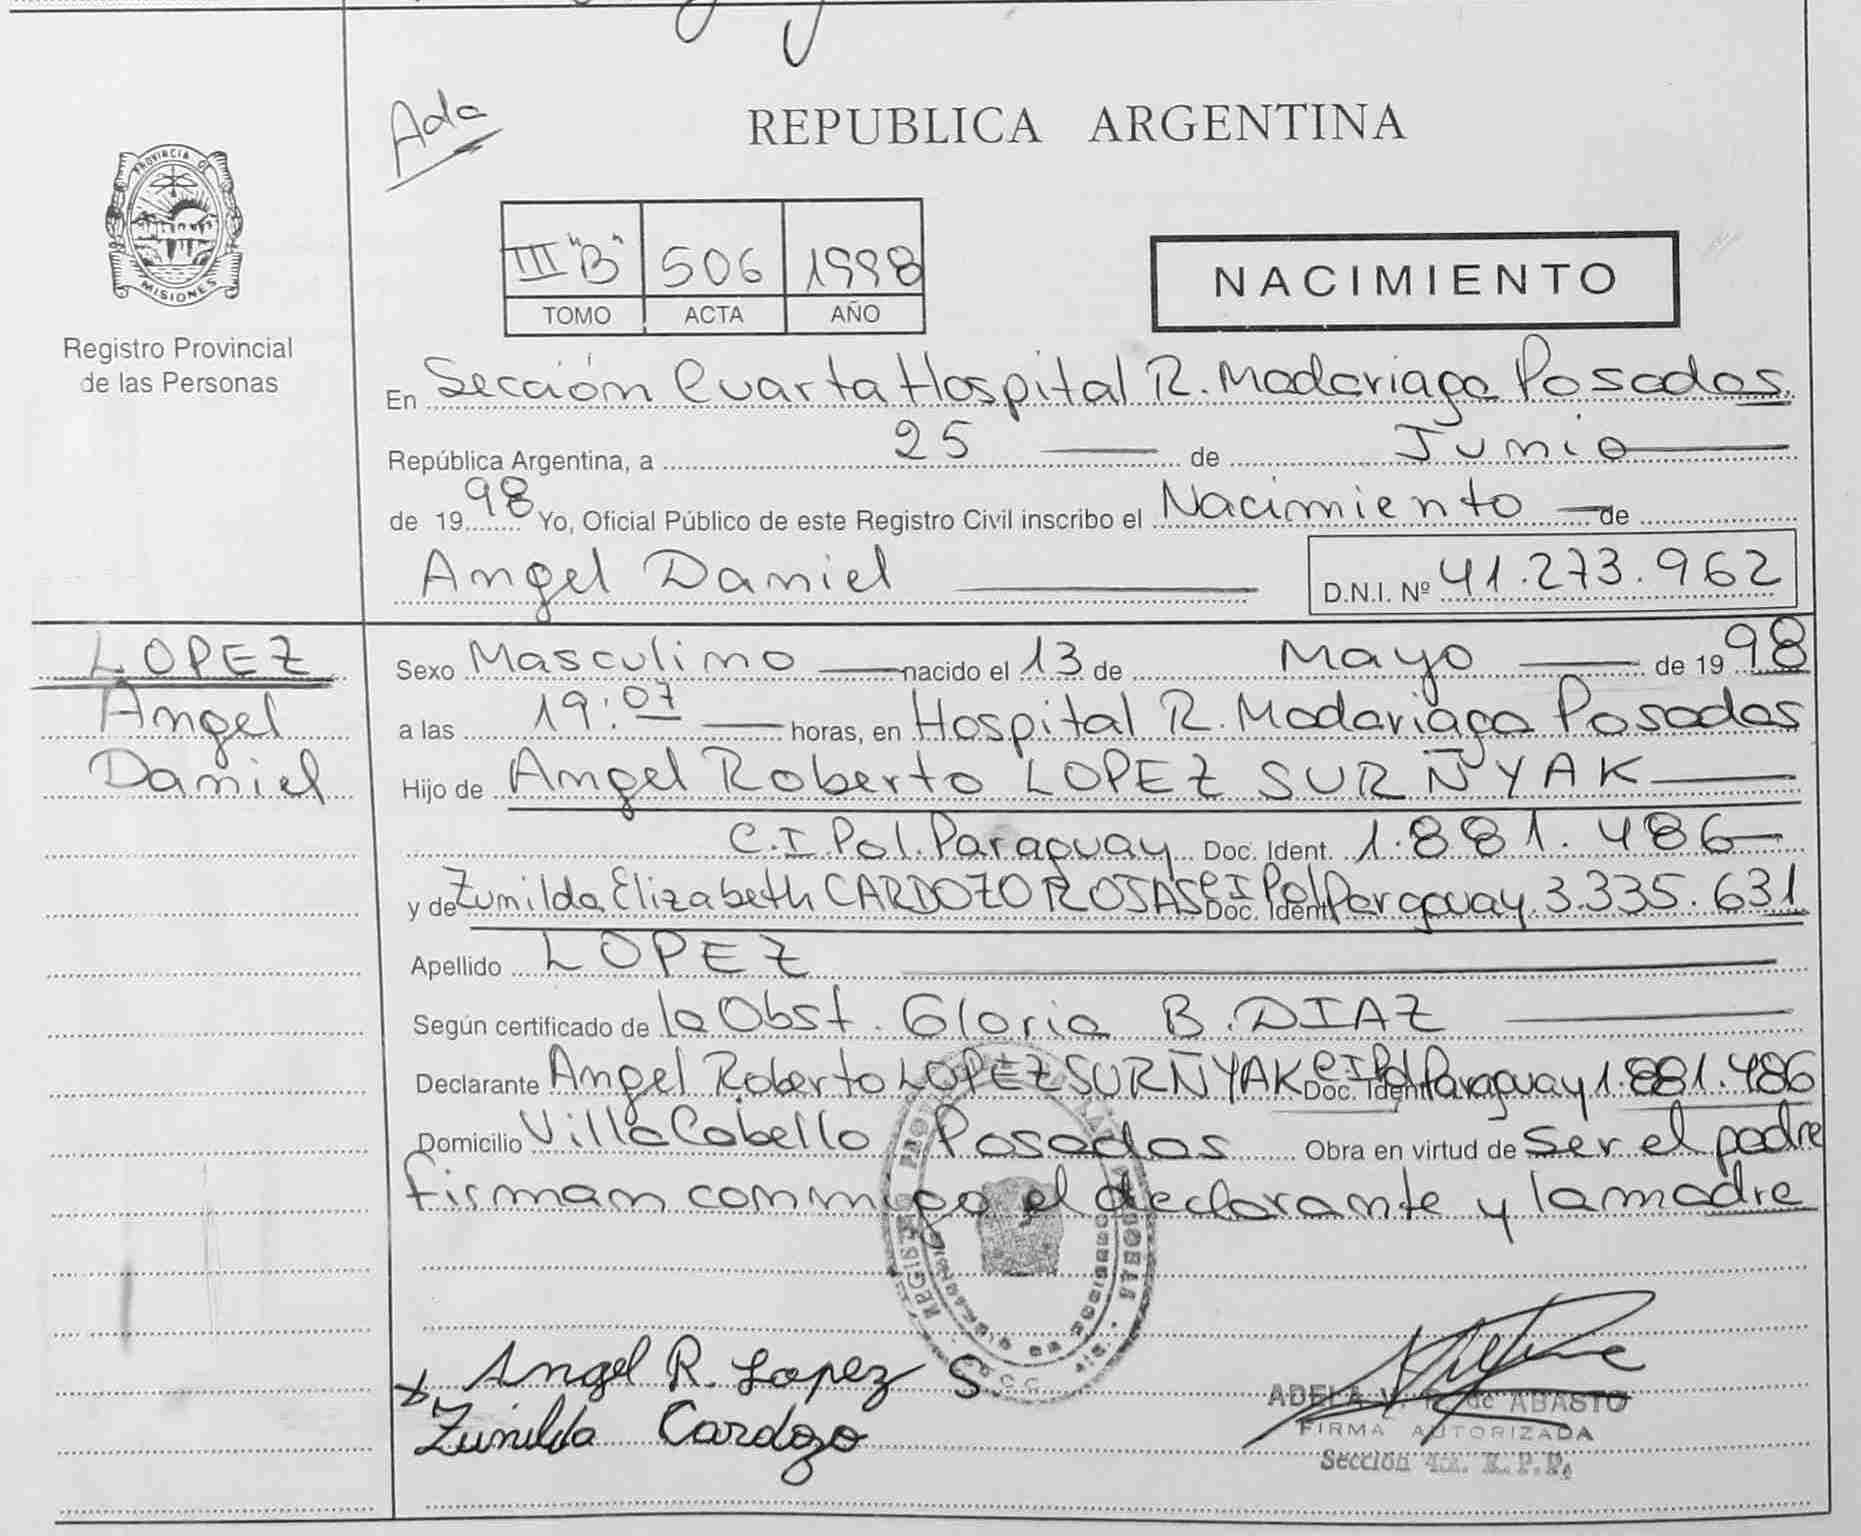 Ada
REPUBLICA ARGENTINA
PROVINCIA D
MISIONES
Registro Provincial
de las Personas
III "B" 506 1998
TOMO ACTA AÑO
NACIMIENTO
En Sección Cuarta Hospital R. Madariaga Posadas.
República Argentina, a 25 de Junio
de 1998 Yo, Oficial Público de este Registro Civil inscribo el Nacimiento de
Angel Daniel D.N.I. Nº 41.273.962
LOPEZ
Angel
Daniel
Sexo Masculino nacido el 13 de Mayo de 1998
a las 19:07 horas, en Hospital R. Madariaga Posadas
Hijo de Angel Roberto LOPEZ SURÑYAK
C.I.Pol.Paraguay Doc. Ident. 1.881.486
y de Zunilda Elizabeth CARDOZO ROJAS CI Pol Doc. Ident. Paraguay 3.335.631
Apellido LOPEZ
Según certificado de la Obst. Gloria B. DIAZ
Declarante Angel Roberto LOPEZ SURÑYAK CI Pol Doc. Ident. Paraguay 1.881.486
Domicilio Villa Cabello Posadas Obra en virtud de ser el padre
firman conmigo el declarante y la madre
Angel R. Lopez S
Zunilda Cardozo
ADELA de ABASTO
FIRMA AUTORIZADA
Sección